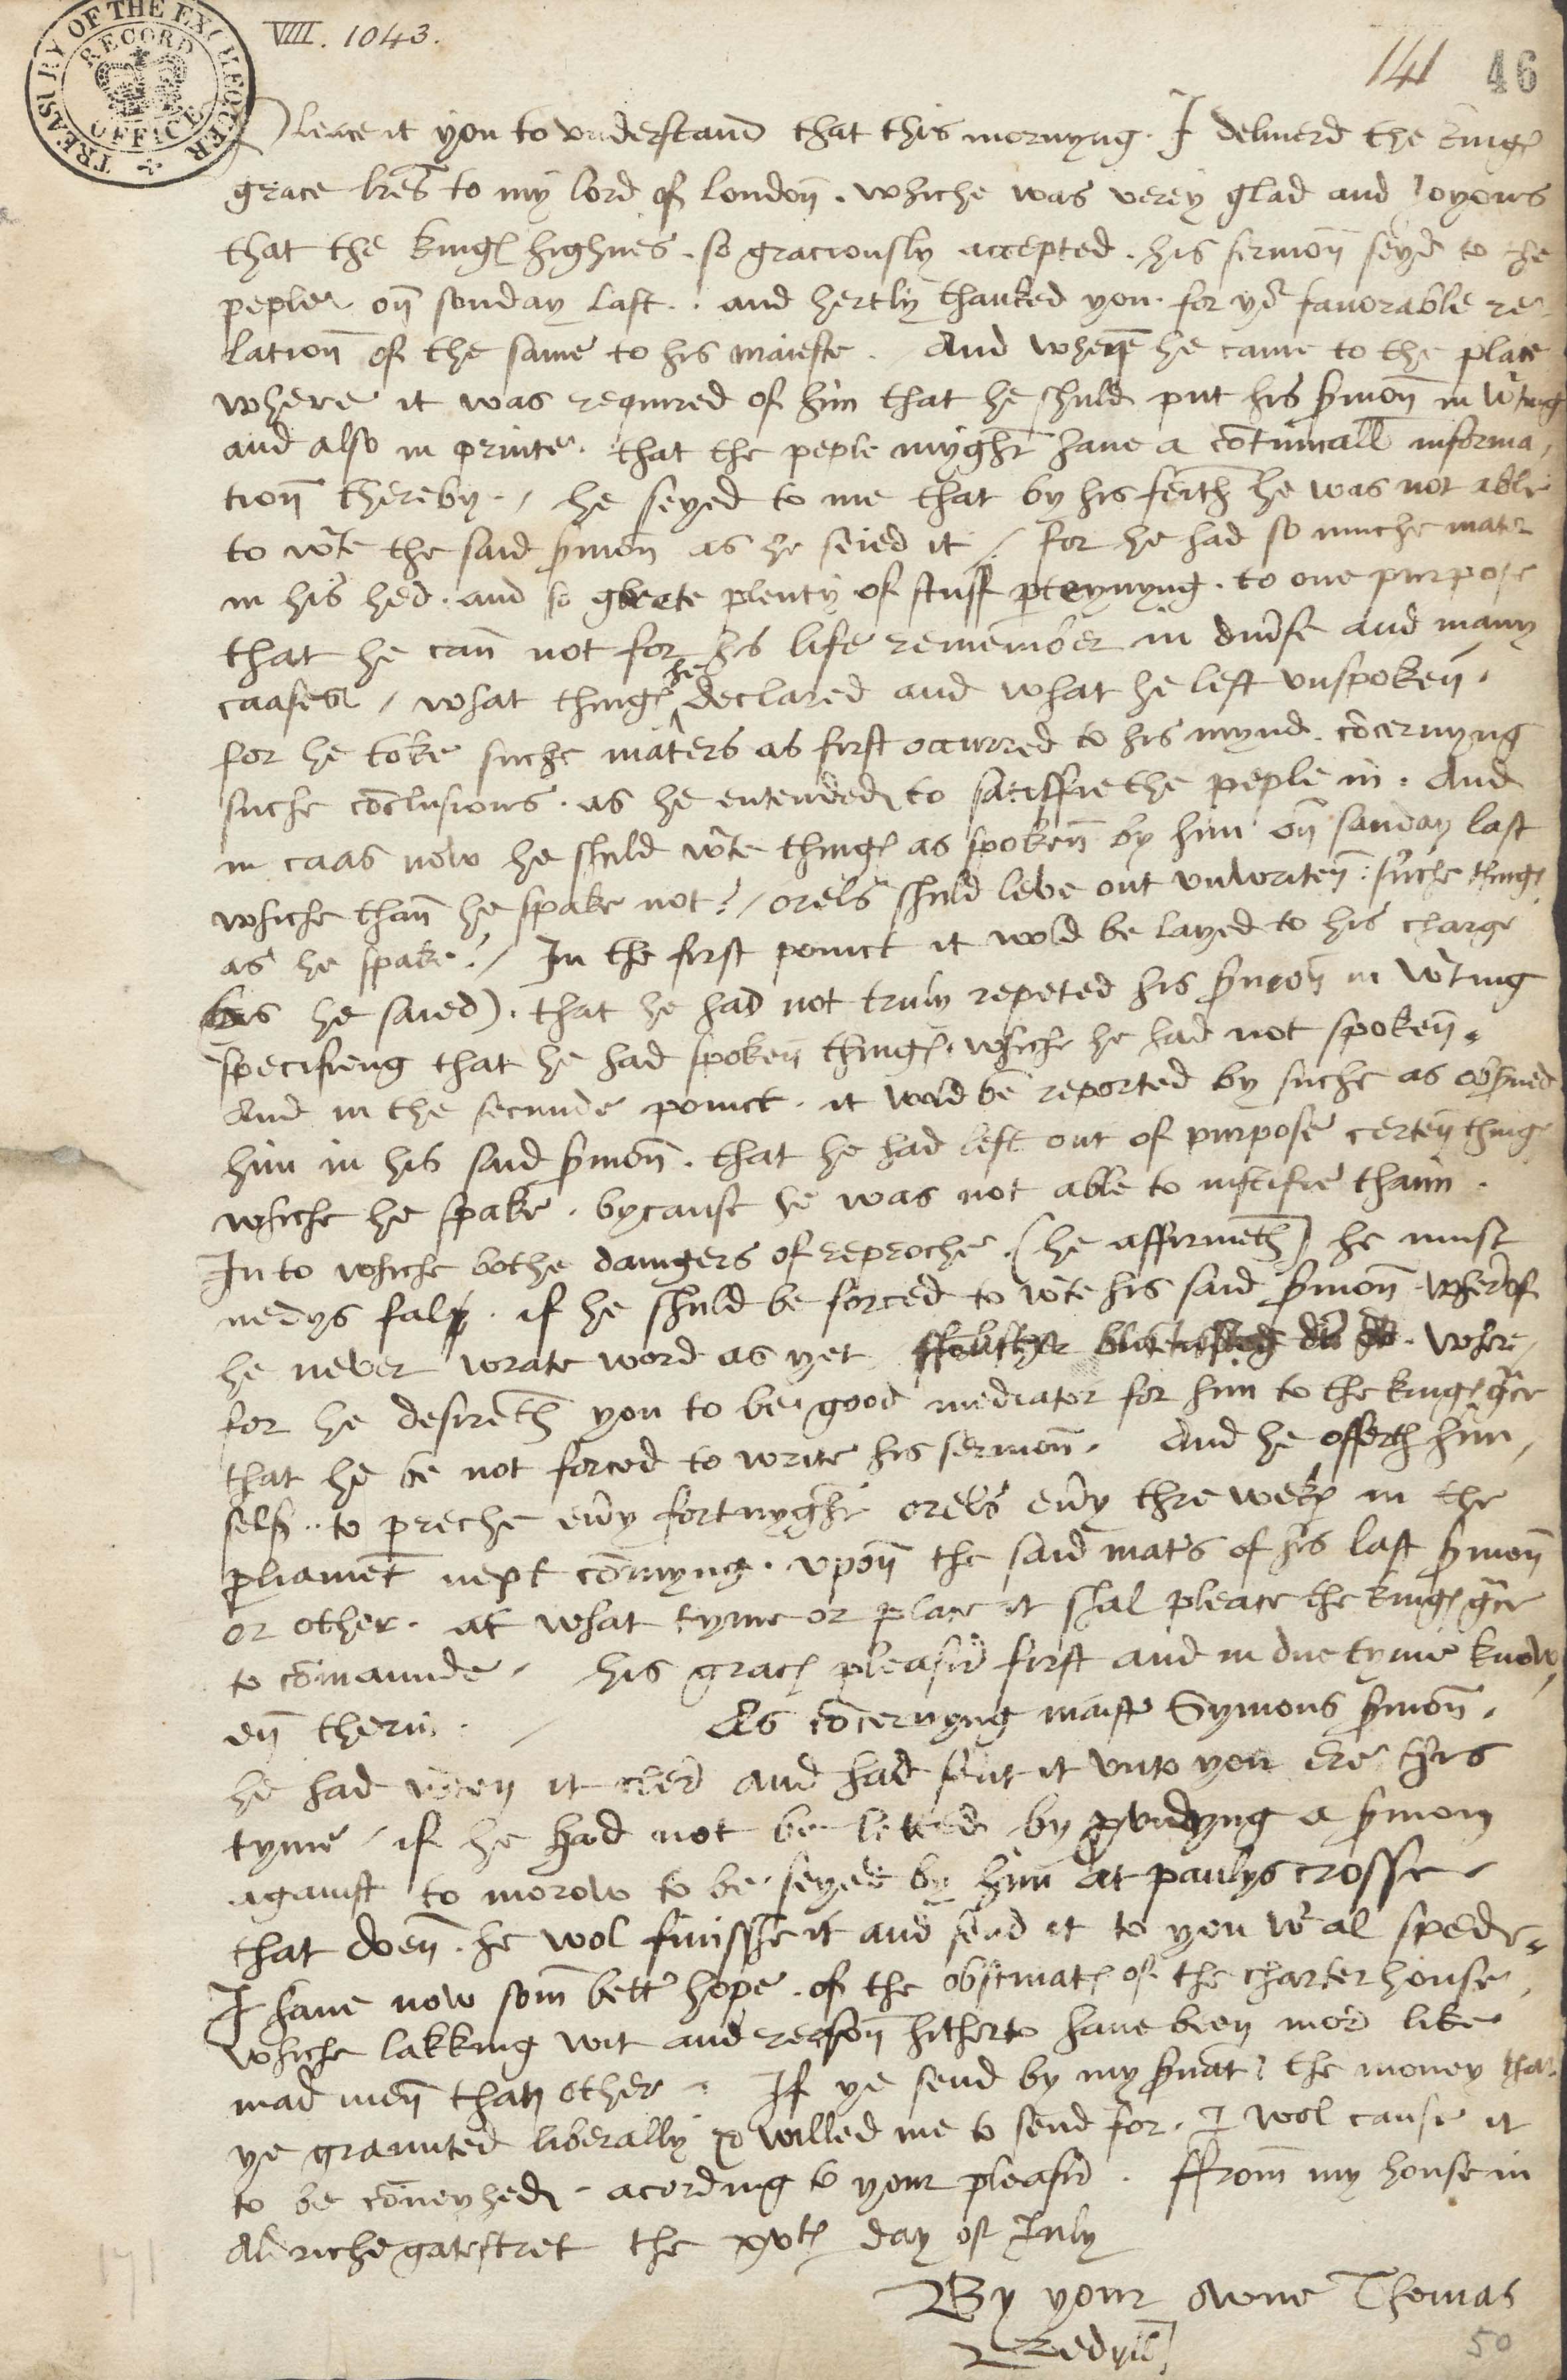 TREASURY OF THE EXCHEQUER
RECORD OFFICE
VIII. 1043.
141 46
Pleace it you to understand that this mornyng. I deliuerd the king
grace lres to my lord of london. whiche was verey glad and Joyous
that the king highnes. so graciously accepted. his sermon seyd to the
peple on sonday last.. and hertly thanked you. for yor fauorable re-
lation of the same to his maieste. And when he came to the place
where it was required of him that he shuld put his smon in writing
and also in printe. that the peple myght haue a continuall informa,
tion thereby. / he seyed to me that by his feith he was not able
to wte the said smon as he seied it / for he had so muche mater
in his hed. and so greate plenty of stuff pteynyng. to one purpose
that he can not for his life remember in diuse and many
caases / what thing he declared and what he left unspoken.
for he toke suche maters as first occurred to his mynd. concernyng
suche conclusions. as he entended to satisffie the peple in. And
in caas now he shuld wte thing as spoken by him on sanday last
whiche than he spake not? / orels shuld leve out unwriten: suche thing
as he spake? / In the first poinct it wold be layed to his charge
(as he saied). that he had not truly repeted his smon in writing
specifieng that he had spoken thing. whiche he had not spoken.
And in the secunde poinct. it wold be reported by suche as obserued
him in his said smon. that he had left out of purpose certen thing
whiche he spake. bycause he was not able to iustifie thaim.
In to whiche bothe daungers of reproche. (he affirmeth) he must
nedys fall. if he shuld be forced to wte his said smon wherof
he never wrate word as yet. where,
for he desireth you to be good mediator for him to the king gce
that he be not forced to write his sermon. And he offerth him,
self.. to preche euy fortnyght orels euy thre wek in the
pliament next comyng. upon the said maters of his last smon
or other. at what tyme or place it shal pleace the king gce
to comaunde / his grac pleasur first and in due tyme know,
en therin. / As concernyng maister Symons smon.
he had writen it cler and had sent it unto you ere this
tyme / if he had not be letted by prouidyng a smon
against to morow to be seyed by him at paulys crosse
that doen. he wol finisshe it and send it to you wt al spede.
I haue now som better hope. of the obstinat of the charterhouse,
whiche lakking wit and reason hitherto haue been mor like
mad men than other. If ye send by my seruant the money that
ye graunted liberally & willed me to send for. I wol cause it
to be conveyhed. acording to your pleasur. ffrom my house in
Aldrichegatestret the xvth day of July
By your owne Thomas
Bedyll
50
171